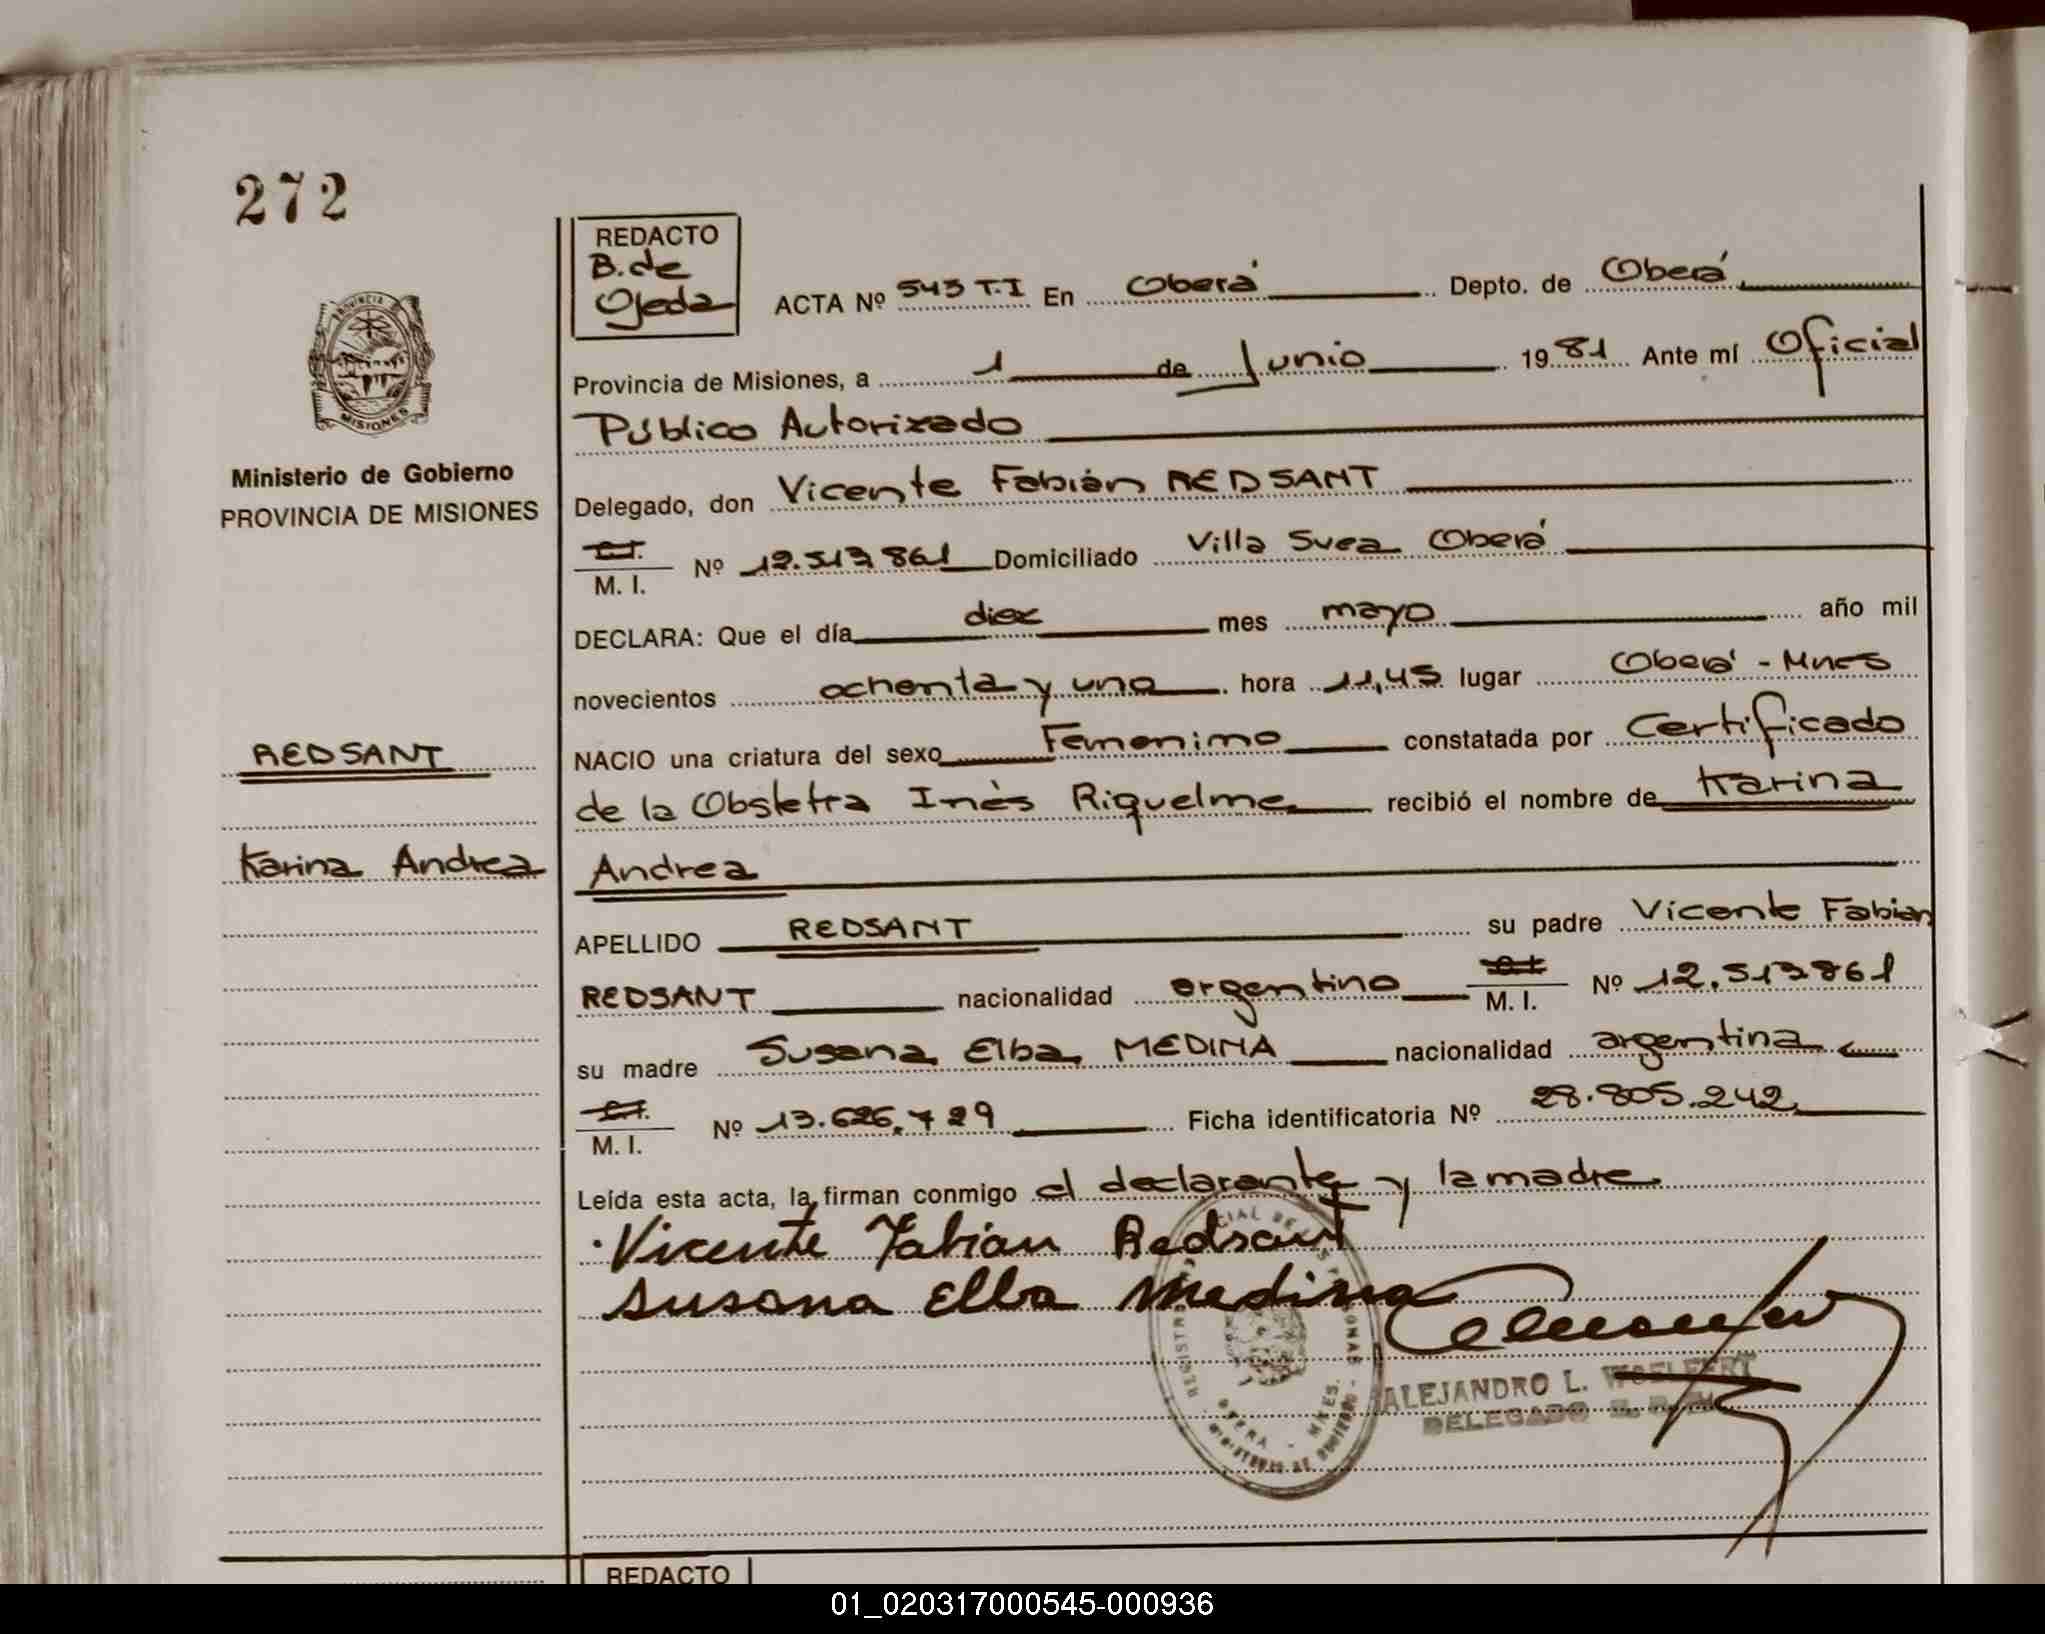 272
REDACTO
B. de
Ojeda
ACTA Nº 543 T.I En Oberá Depto. de Oberá
Provincia de Misiones, a 1 de Junio 1981 Ante mí Oficial
Público Autorizado
PROVINCIA DE
MISIONES
Ministerio de Gobierno
PROVINCIA DE MISIONES
Delegado, don Vicente Fabián REDSANT
C.I.
M. I. Nº 12.513861 Domiciliado Villa Svea Oberá
DECLARA: Que el día diez mes mayo año mil
novecientos ochenta y uno hora 11,45 lugar Oberá - Mnes
REDSANT
NACIO una criatura del sexo Femenino constatada por Certificado
de la Obstetra Inés Riquelme recibió el nombre de Karina
Karina Andrea
Andrea
APELLIDO REDSANT su padre Vicente Fabian
REDSANT nacionalidad argentino C.I. M. I. Nº 12.513861
su madre Susana Elba MEDINA nacionalidad argentina
C.I.
M. I. Nº 13.626.729 Ficha identificatoria Nº 28.805.242
Leída esta acta, la firman conmigo el declarante y la madre.
Vicente Fabian Redsant
Susana Elba Medina
ALEJANDRO L.
DELEGADO
REDACTO
01_020317000545-000936